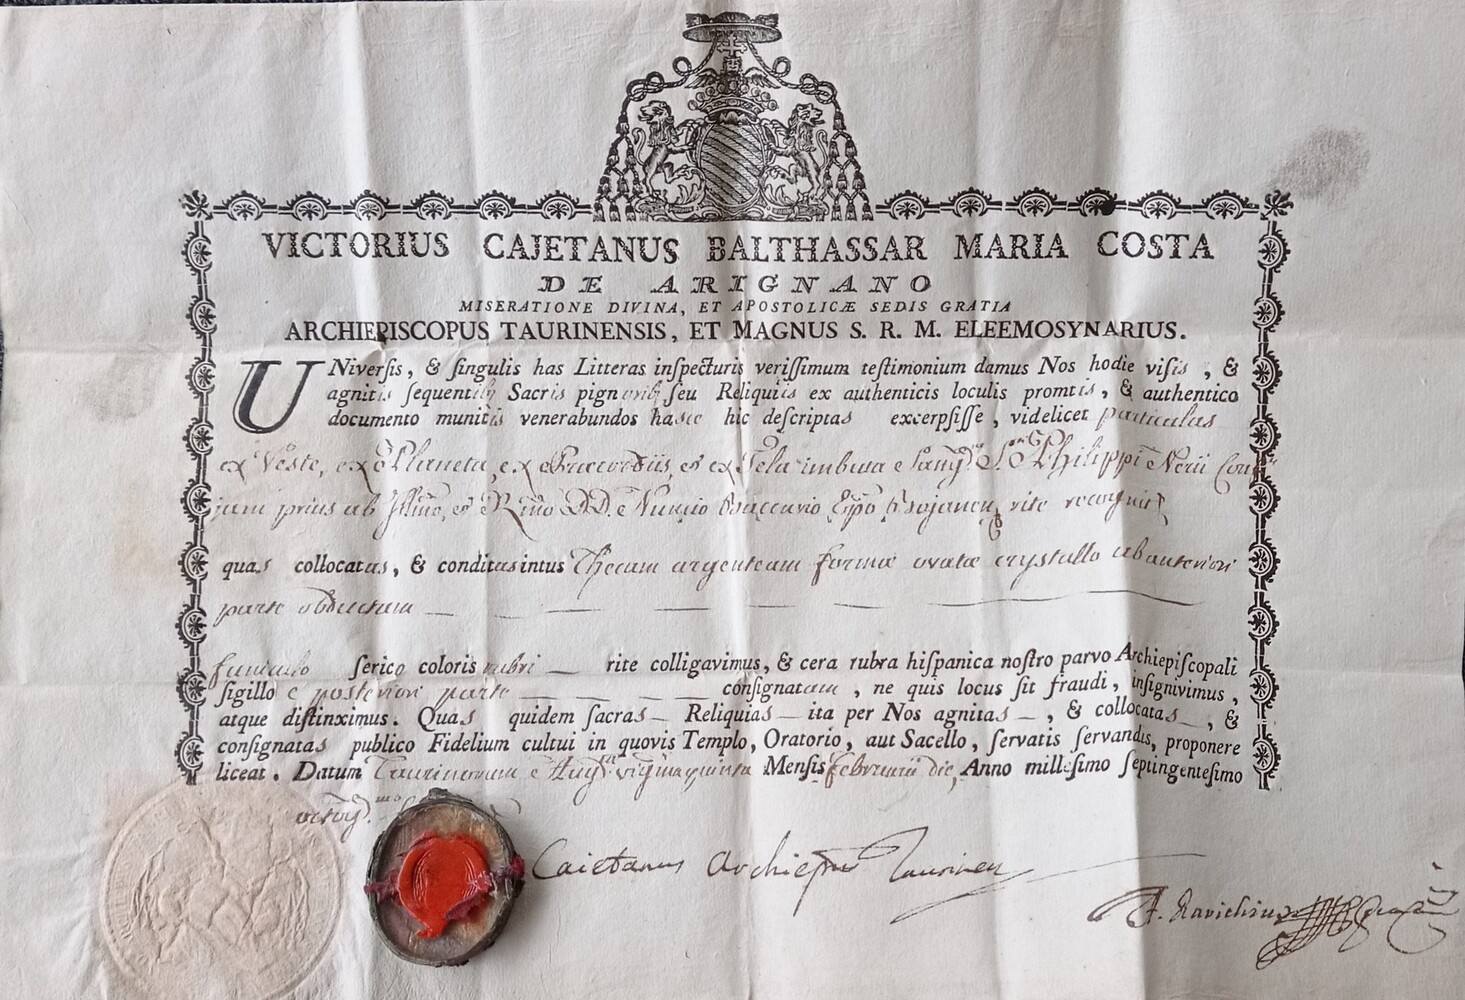 VICTORIUS CAJETANUS BALTHASSAR MARIA COSTA
DE ARIGNANO
MISERATIONE DIVINA, ET APOSTOLICÆ SEDIS GRATIA
ARCHIEPISCOPUS TAURINENSIS, ET MAGNUS S. R. M. ELEEMOSYNARIUS.
UNiverſis, & ſingulis has Litteras inſpecturis veriſſimum teſtimonium damus Nos hodie viſis, &
agnitis ſequentib; Sacris pignorib; ſeu Reliquiis ex authenticis loculis promtis, & authentico
documento munitis venerabundos hasce hic deſcriptas excerpſiſſe, videlicet particulas
ex Veste, ex Planeta, ex Præcordiis, et ex Tela imbuta Sang.ne S. Philippi Nerii
jam prius ab Illmo, et Rmo DD. Nuncio Baccario Epo Bojanen rite recognit
quas collocatas, & conditas intus Thecam argenteam formæ ovatæ crystallo ab anteriori
parte obductam
funiculo ſerico coloris rubri rite colligavimus, & cera rubra hiſpanica noſtro parvo Archiepiſcopali
ſigillo a posteriori parte conſignatam, ne quis locus ſit fraudi, inſignivimus,
atque diſtinximus. Quas quidem ſacras Reliquias ita per Nos agnitas, & collocatas, &
conſignatas publico Fidelium cultui in quovis Templo, Oratorio, aut Sacello, ſervatis ſervandis, proponere
liceat. Datum Taurinorum Aug. vigina quinta Mensis februarii die, Anno milleſimo ſeptingenteſimo
octog.mo
Caietanus Archiepus Taurinen